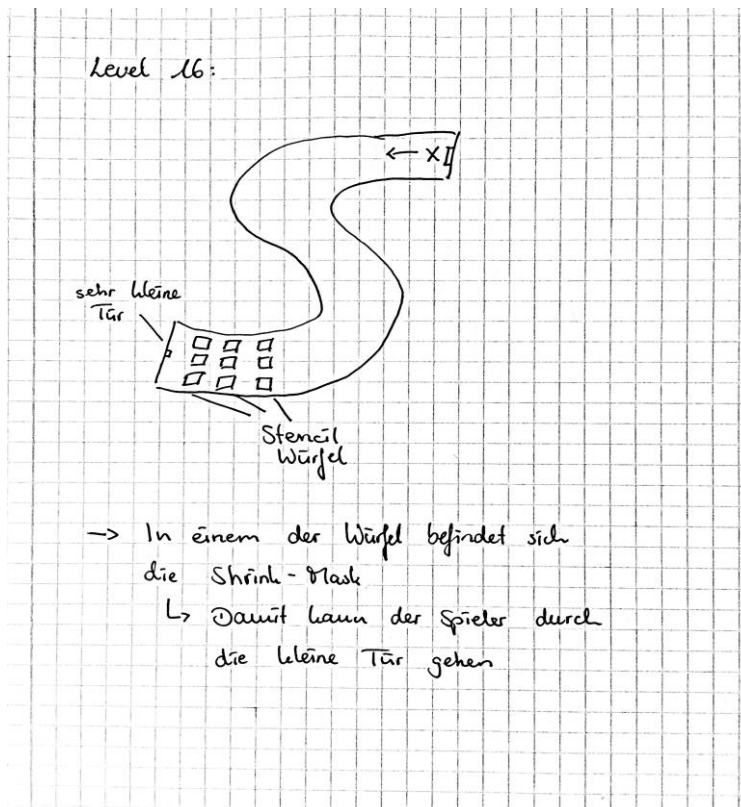 Level 16:
X
sehr kleine
Tür
Stencil
Würfel
-> In einem der Würfel befindet sich
die Shrink-Mask
↳ Damit kann der Spieler durch
die kleine Tür gehen